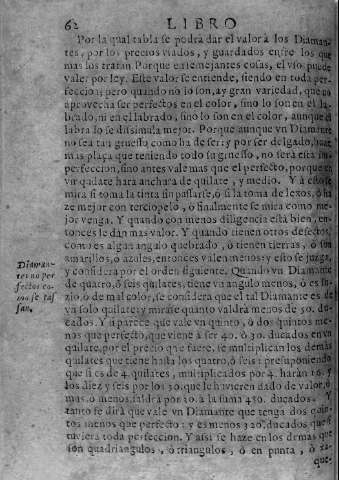 62 LIBRO
Por la qual tabla se podrà dar el valor à los Diaman-
tes, por los precios viados, y guardados entre los que
mas los tratan. Porque en semejantes cosas, el vso puede
valer por ley. Este valor se entiende, siendo en toda per-
feccion; pero quando no lo son, ay gran variedad, que no
aprovecha ser perfectos en el color, sino lo son en el la-
brado, ni en el labrado, sino lo son en el color, aunque el
labra se dissimula mejor. Porque aunque vn Diamante
no sea tan gruesso como ha de ser; y por ser delgado, haze
mas plaça que teniendo todo su gruesso, no será esta im-
perfeccion, sino antes vale mas que el perfecto, porque en
vn quilate harà anchura de quilate, y medio. Y à esto se
mira si toma la tinta sin passarse, ò si la toma de lexos, ò ha
ze mejor con terciopelo, ò finalmente se mira como me-
jor venga. Y quando con menos diligencia està bien, en-
tonces le dàn mas valor. Y quando tienen otros defectos,
como es algun angulo quebrado, ò tienen tierras, ò son
amarillos, ò azules, entonces valen menos; y esto se juzga,
y considera por el orden siguiente. Quando vn Diamante
de quatro, ò seis quilates, tiene vn angulo menos, ò es su-
zio, ò de mal color, se considera que el tal Diamante es de
vn solo quilate; y mirase quanto valdrà menos de 50. du-
cados. Y si parece que vale vn quinto, ò dos quintos me-
nos que perfecto, que viene à ser 40. ò 30. ducados en vn
quilate, por el precio que fuere, se multiplican los demás
quilates que tiene hasta los quatro, ò seis: presuponiendo
que si es de 4. quilates, multiplicados por 4. haràn 16. y
los diez y seis por los 30. que le huvieren dado de valor, ò
mas, ò menos, saldrà por 30. à la suma 480. ducados. Y
tanto se dirà que vale vn Diamante que tenga dos quin-
tos menos que perfecto: y es menos 320. ducados que si
tuviera toda perfeccion. Y assi se haze en los demas que
son quadriangulos, ò triangulos, ò en punta, ò
que-
Diaman-
tes no per
fectos co-
mo se tas
san.